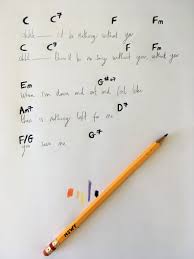 C C7 F Fm
ohhh I'd be nothing without you
C C7 F Fm
ohhh I'd be nothing without you, without you
Em G#+7
when I'm down and out and feel like
Am7 D7
there is nothing left for me
F/G G7
you save me